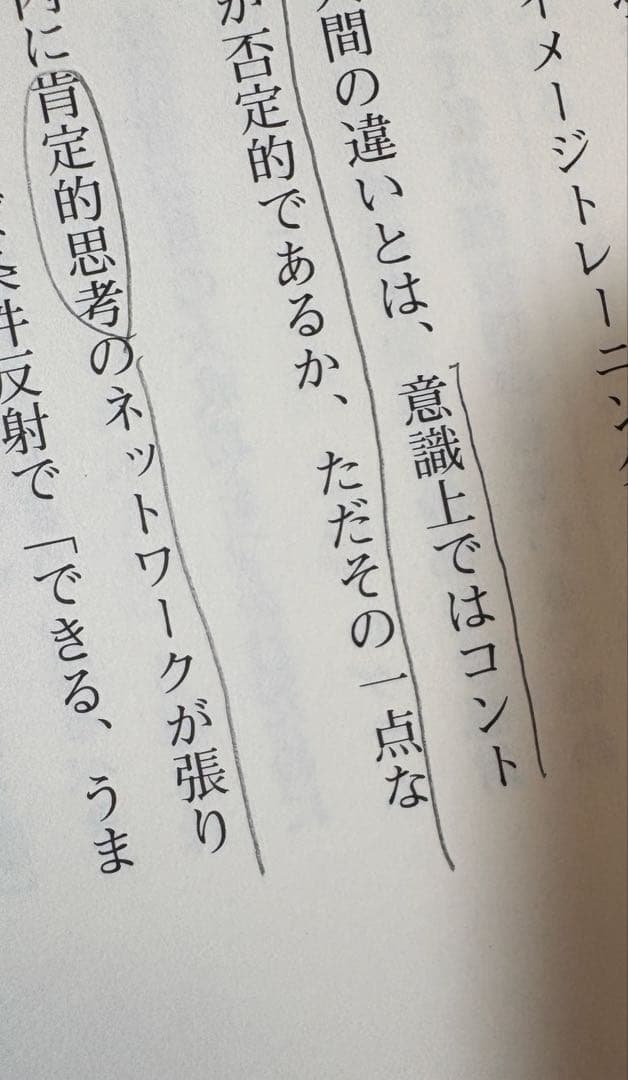 イメージトレーニング
間の違いとは、意識上ではコント
が否定的であるか、ただその一点な
内に肯定的思考のネットワークが張り
条件反射で「できる、うま